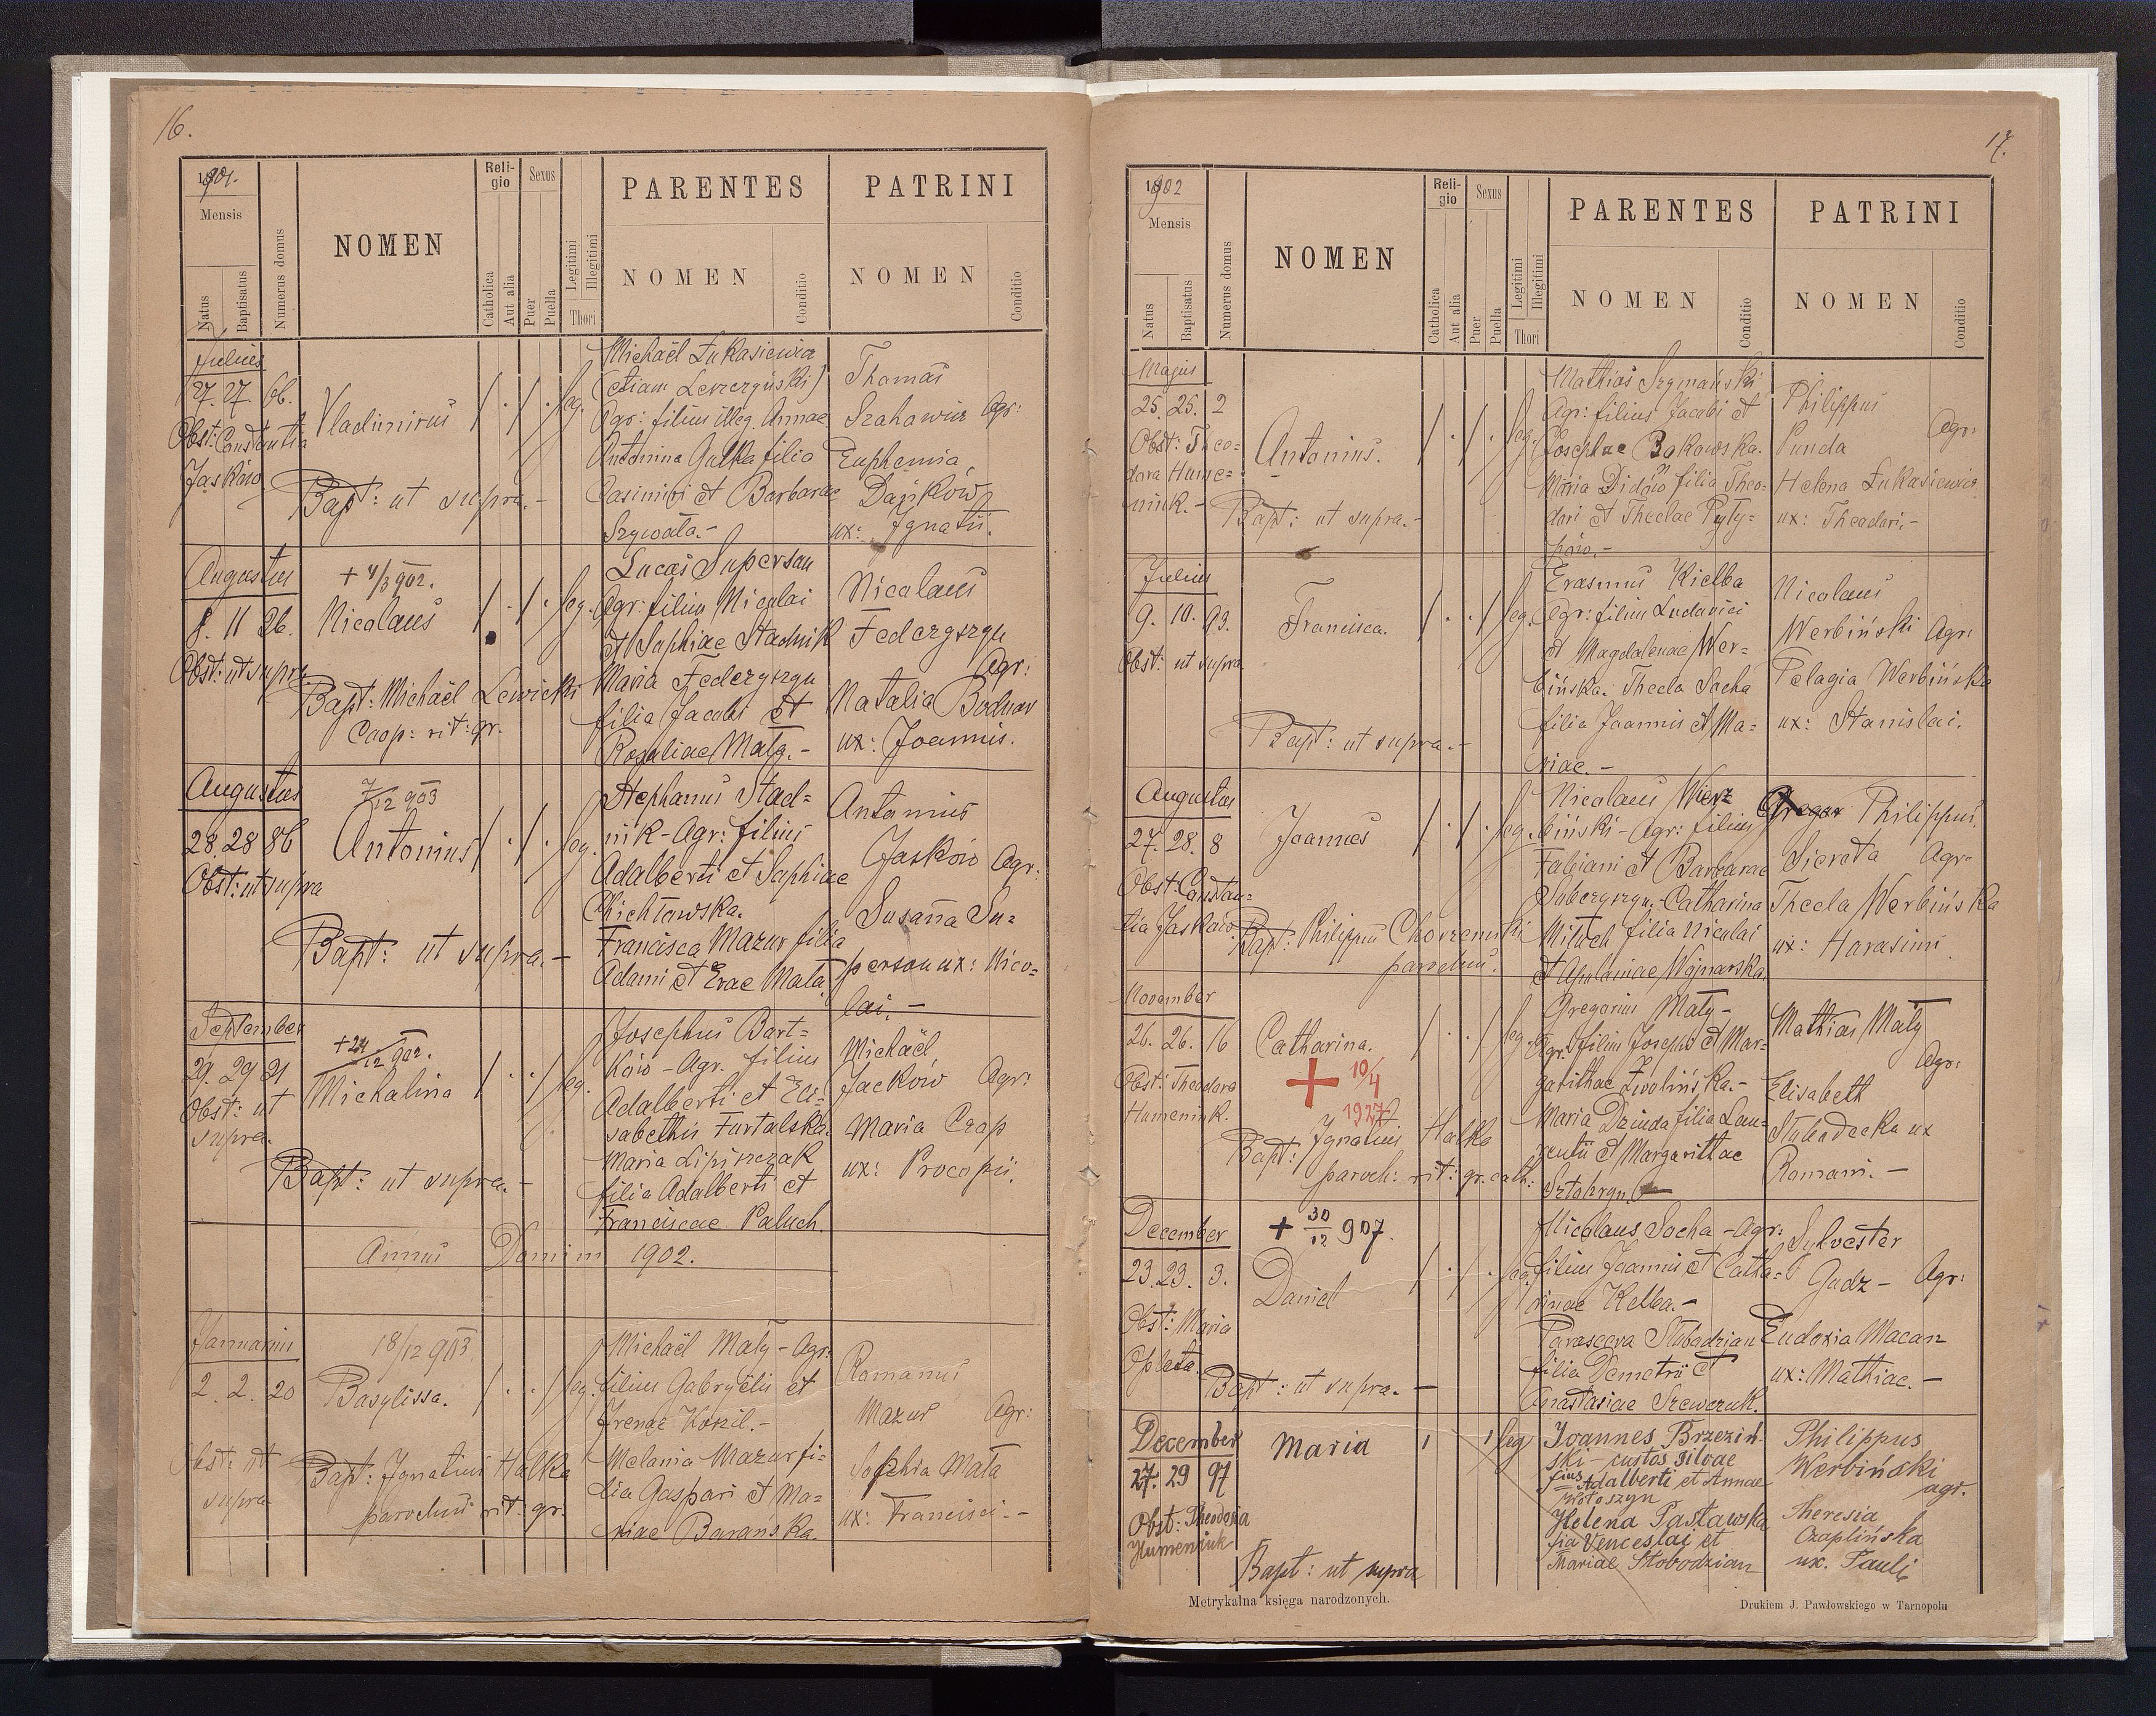 16.
1901.
Mensis
Natus
Baptisatus
Numerus domus
NOMEN
Religio
Catholica
Aut alia
Sexus
Puer
Puella
Legitimi
Illegitimi
Thori
PARENTES
NOMEN
Conditio
PATRINI
NOMEN
Conditio
Julius
27. 27. 66.
Obst: Constantia
Jasków
Vladimirus
/ . / . leg.
Bapt: ut supra.-
Michaël Łukasiewicz
(etiam Lewczyński)
Agr: filius illeg. Annae
Antonina Gałka filia
Casimiri et Barbarae
Szywała.-
Thomas
Szahawicz Agr:
Euphemia
Dańków
ux: Ignatii.
Augustus
8. 11 26.
Obst: ut supra
+ 4/3 902.
Nicolaus
/ . / . leg.
Bapt: Michaël Lewicki
Coop: rit: gr.
Lucas Superson
Agr: filius Nicolai
et Sophiae Stadnik
Maria Federgrzyn
filia Jacobi et
Rosaliae Mały.-
Nicolaus
Federgrzyn
Agr:
Natalia Bodnar
ux: Joannis.
Augustus
28. 28 86
Obst: ut supra
7/12 903
Antonius
/ . / . leg.
Bapt: ut supra.-
Stephanus Stad=
nik - Agr: filius
Adalberti et Sophiae
Cichłowska.
Francisca Mazur filia
Adami et Evae Mała
Antonius
Jasków Agr:
Susanna Su=
person ux: Nico=
lai.-
September
29. 29 21
Obst: ut
supra.
+ 24/12 902.
Michalina
/ . . / leg.
Bapt: ut supra.-
Josephus Bart=
ków - Agr. filius
Adalberti et Eli=
sabethis Furtalska.
Maria Lipiszczak
filia Adalberti et
Franciscae Paluch.
Michaël
Jacków Agr:
Maria Czop
ux: Procopii.
Annus Domini 1902.
Januarius
2. 2. 20
Obst: ut
supra
18/12 903
Basylissa.
/ . . / leg.
Bapt: Ignatius Hałka
parochus rit: gr.
Michaël Mały - Agr:
filius Gabryelis et
Irenae Kozil.-
Melania Mazur fi=
lia Gaspari et Ma=
riae Baranska.
Romanus
Mazur Agr:
Sophia Mała
ux: Francisci.-
17.
1902
Mensis
Natus
Baptisatus
Numerus domus
NOMEN
Religio
Catholica
Aut alia
Sexus
Puer
Puella
Legitimi
Illegitimi
Thori
PARENTES
NOMEN
Conditio
PATRINI
NOMEN
Conditio
Majus
25. 25. 2
Obst: Theo=
dora Hume=
niuk.-
Antonius.
/ . / . leg.
Bapt: ut supra.-
Mathias Szymański
Agr: filius Jacobi et
Josephae Bakowska.
Maria Didów filia Theo=
dori et Theclae Pyty=
pów.-
Philippus
Punda Agr:
Helena Łukasiewicz
ux: Theodori.-
Julius
9. 10. 93.
Obst: ut supra.
Francisca.
/ . . / leg.
Bapt: ut supra.-
Erasmus Kiełba
Agr: filius Ludovici
et Magdalenae Wer=
bińska. Thecla Socha
filia Joannis et Ma=
riae.-
Nicolaus
Werbiński Agr:
Pelagia Werbińska
ux: Stanislai.
Augustus
27. 28. 8
Obst: Constan=
tia Jasków
Joannes
/ . / . leg.
Bapt: Philippus Chorzemski
parochus.
Nicolaus Wierz
biński - Agr: filius
Fabiani et Barbarae
Sobergrzyn. Catharina
Mituch filia Nicolai
et Apoloniae Wojnarska.
Gregor Philippus
Sierota Agr.
Thecla Werbińska
ux: Harasimi.
November
26. 26. 16
Obst: Theodora
Humeniuk.
Catharina.
+ 10/4
1927
/ . . / leg.
Bapt: Ignatius Hałka
paroch: rit: gr. cath:
Gregorius Mały -
Agr: filius Josephi et Mar=
garithae Zwalińska.-
Maria Dziuda filia Lau=
rentii et Margarithae
Mathias Mały
Agr:
Elisabeth
Słobodecka ux
Romani.-
December
23. 23. 3.
Obst: Maria
Opleta.
+ 30/12 907.
Daniel
/ . / . leg.
Bapt: ut supra.-
Nicolaus Socha - Agr:
filius Joannis et Catha=
rinae Kelba.-
Parasceva Słobodzian
filia Demetrii et
Anastasiae Szewczuk.
Sylvester
Gudz - Agr:
Eudoxia Macan
ux: Mathiae.-
December
27. 29 97
Obst: Theodozia
Humeniuk
Maria
1 1 leg
Bapt: ut supra
Joannes Brzeziń
ski - custos silvae
fius Adalberti et Annae
Wołoszyn
Helena Pasławska
fia Venceslai et
Mariae Słobodzian
Philippus
Werbiński
agr.
Theresia
Czaplińska
ux. Pauli
Metrykalna księga narodzonych.
Drukiem J. Pawłowskiego w Tarnopolu